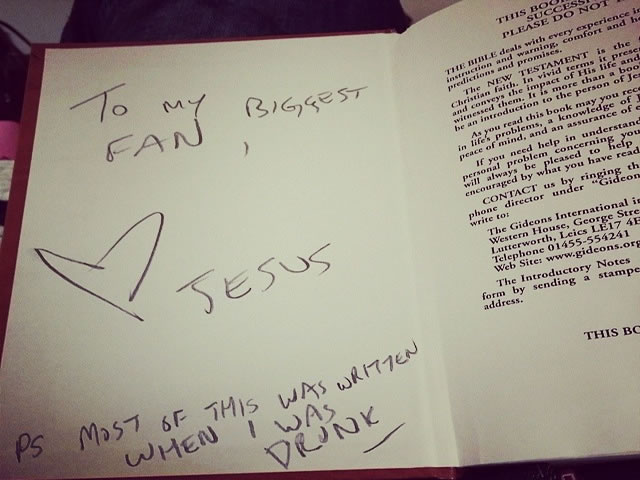 TO MY BIGGEST
FAN,
JESUS
PS MOST OF THIS WAS WRITTEN
WHEN I WAS
DRUNK
THIS BOO
SUCCESS
PLEASE DO NOT
THE BIBLE deals with every experience
instruction and warning, comfort and
predictions and promises.
The NEW TESTAMENT is the
Christian faith. In vivid terms it prese
and conveys the impact of His life and
witnessed them. It is more than a book
be an introduction to the person of
As you read this book may you
in life's problems, a knowledge of
peace of mind, and an assurance of
If you need help in understand
personal problem concerning you
will always be pleased to help
encouraged by what you have read
CONTACT us by ringing the
phone director under "Gideon
write to:
The Gideons International
Western House, George Stre
Lutterworth, Leics LE17 4E
Telephone 01455-554241
Web Site: www.gideons.org
The Introductory Notes
form by sending a stampe
address.
THIS BO